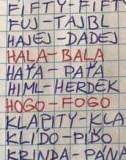 FIFTY-FIFT
FUJ-TAJBL
HAJEJ-DADEJ
HALA-BALA
HAŤA-PAŤA
HIML-HERDEK
HOGO-FOGO
KLAPITY-KLA
KLÍDO-PÍDO
KRINDA-PÁNA